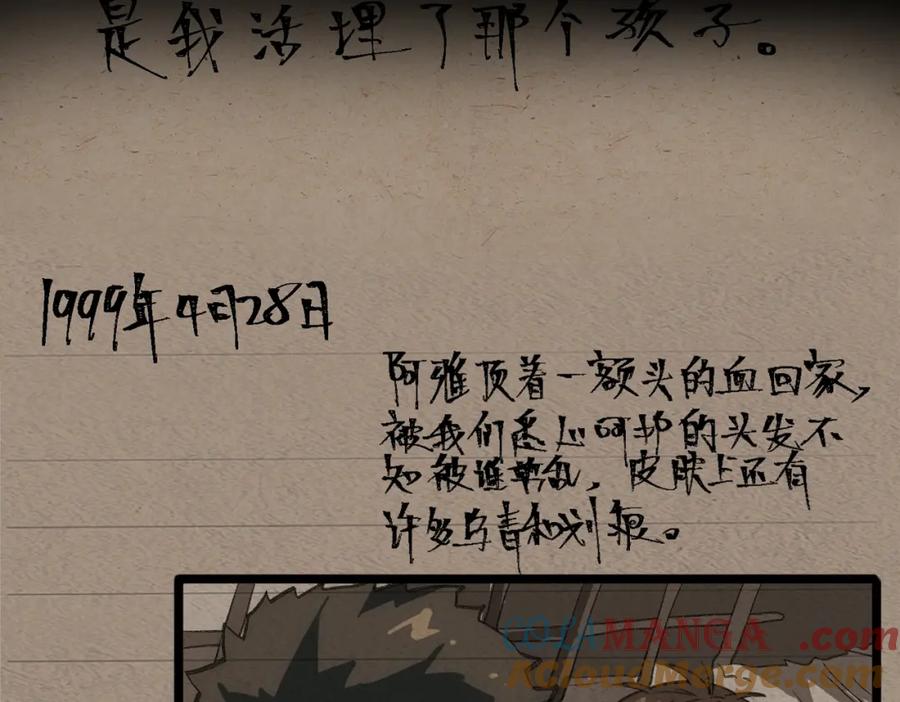 是我活埋了那个孩子。
1999年4月28日
阿雅顶着一额头的血回家,
被我们悉心呵护的头发不
知被谁弄乱,皮肤上还有
许多乌青和划痕。
COLAMANGA.com
XCloudMerge.com